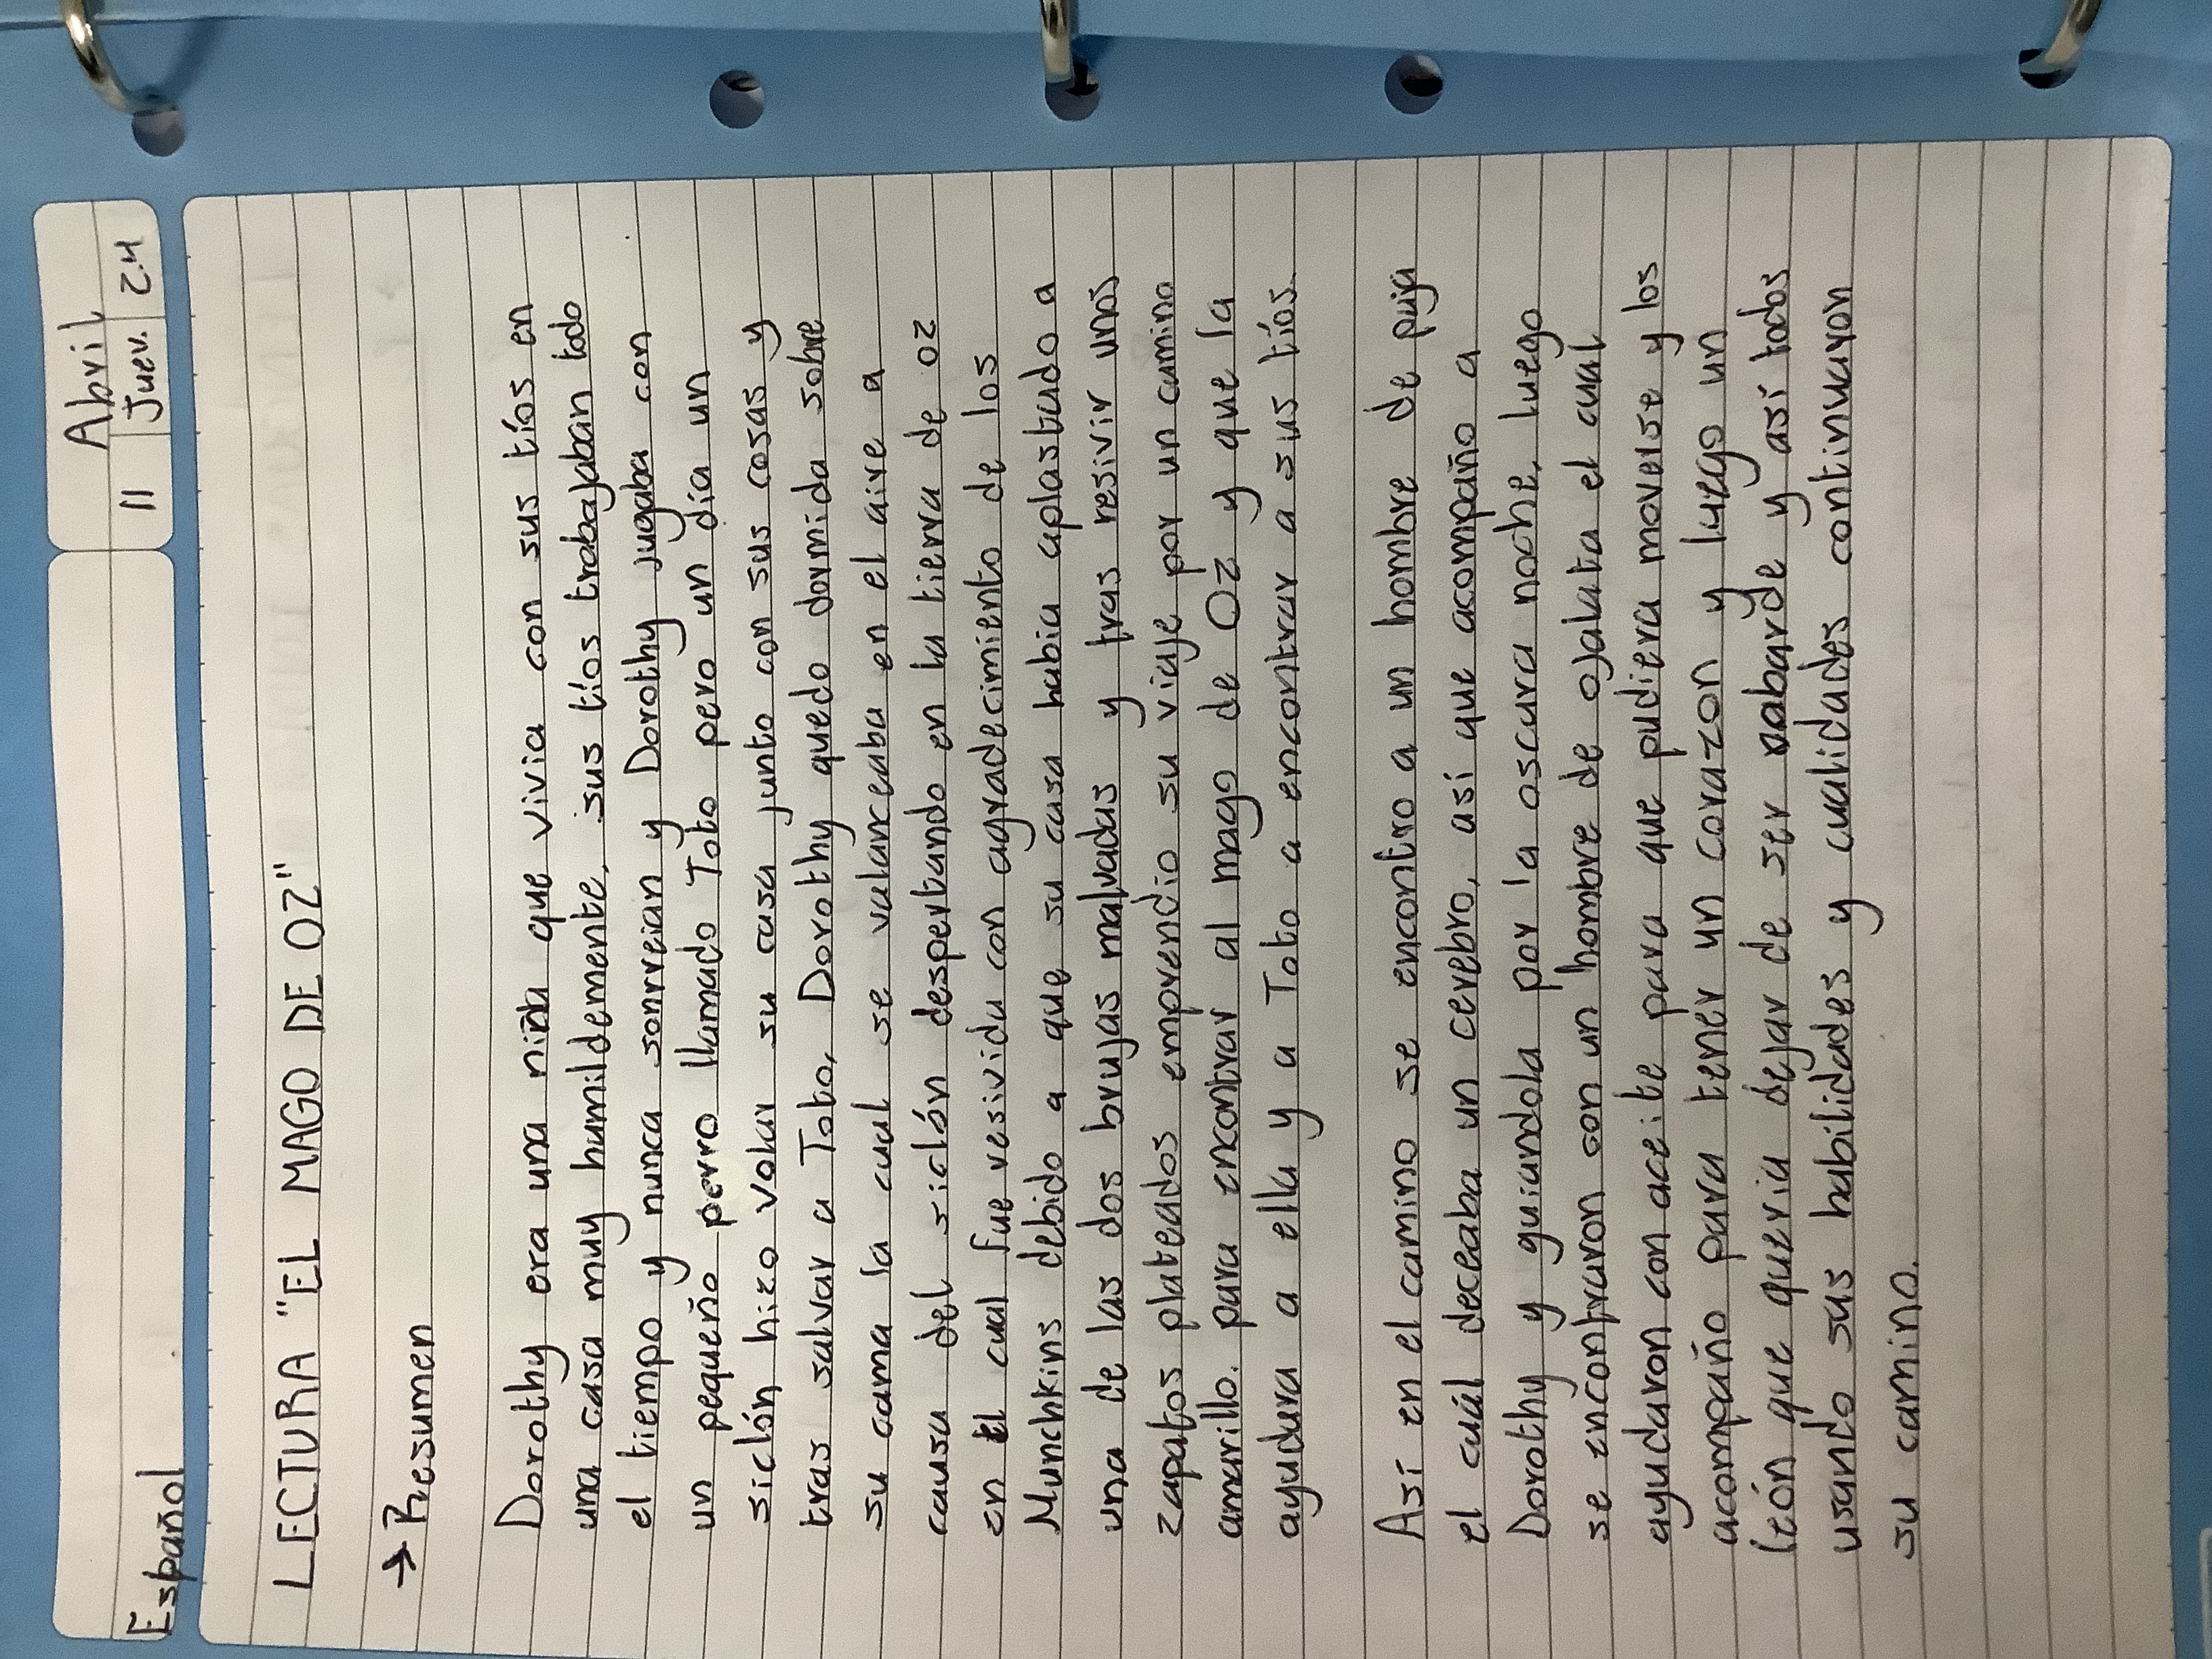 Español
Abril
11 Juev. 24
LECTURA "EL MAGO DE OZ"
→ Resumen
Dorothy era una niña que vivia con sus tíos en
una casa muy humildemente, sus tíos trabajaban todo
el tiempo y nunca sonreian y Dorothy jugaba con
un pequeño perro llamado Toto pero un día un
siclón hizo volar su casa junto con sus cosas y
tras salvar a Toto, Dorothy quedo dormida sobre
su cama la cual se valanceaba en el aire a
causa del siclón despertando en la tierra de oz
en el cual fue resivida con agradecimiento de los
Munchkins debido a que su casa habia aplastado a
una de las dos brujas malvadas y tras resivir unos
zapatos plateados emprendio su viaje por un camino
amarillo. para encontrar al mago de OZ y que la
ayudara a ella y a Toto a encontrar a sus tíos.
Así en el camino se encontro a un hombre de paja
el cuál deceaba un cerebro, así que acompaño a
Dorothy y guiandola por la oscura noche, luego
se encontraron con un hombre de ojalata el cual
ayudaron con aceite para que pudiera moverse y los
acompaño para tener un corazon y luego un
león que queria dejar de ser cobarde y así todos
usando sus habilidades y cualidades continuaron
su camino.